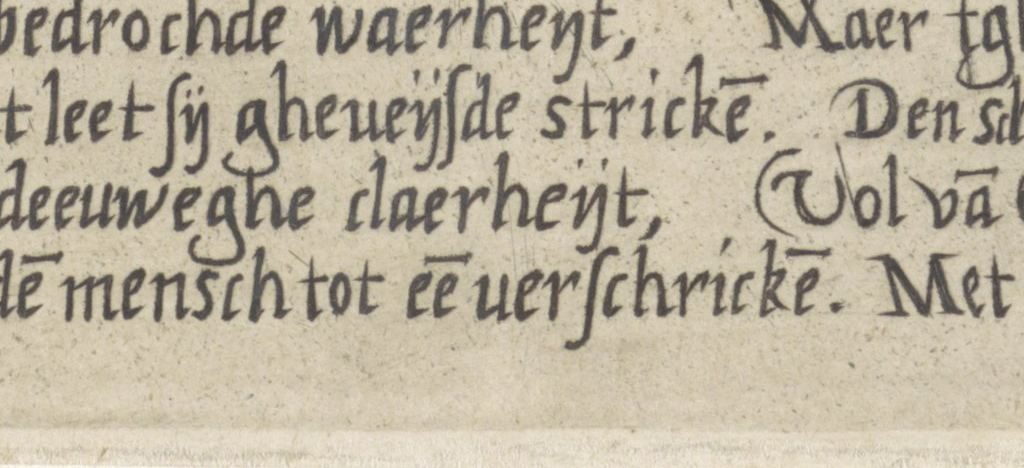 bedrochde waerheyt, Maer tgh
t leet sÿ gheueÿsde strickē. Den sch
deeuweghe claerheÿt, Vol vā
dē mensch tot eē uerschrickē. Met